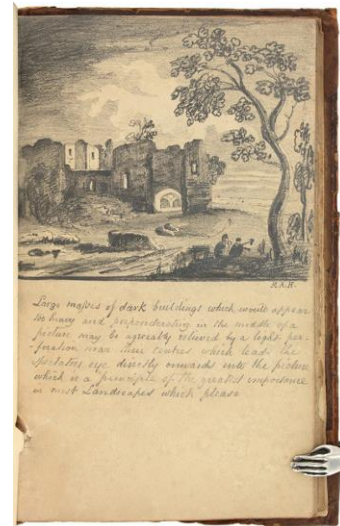 R.A.R.
Large masses of dark buildings which would appear
too heavy and preponderating in the middle of a
picture may be agreeably relieved by a light per-
foration near their centres which leads the
spectators eye directly inwards into the picture
which is a principle of the greatest importance
in most Landscapes which please